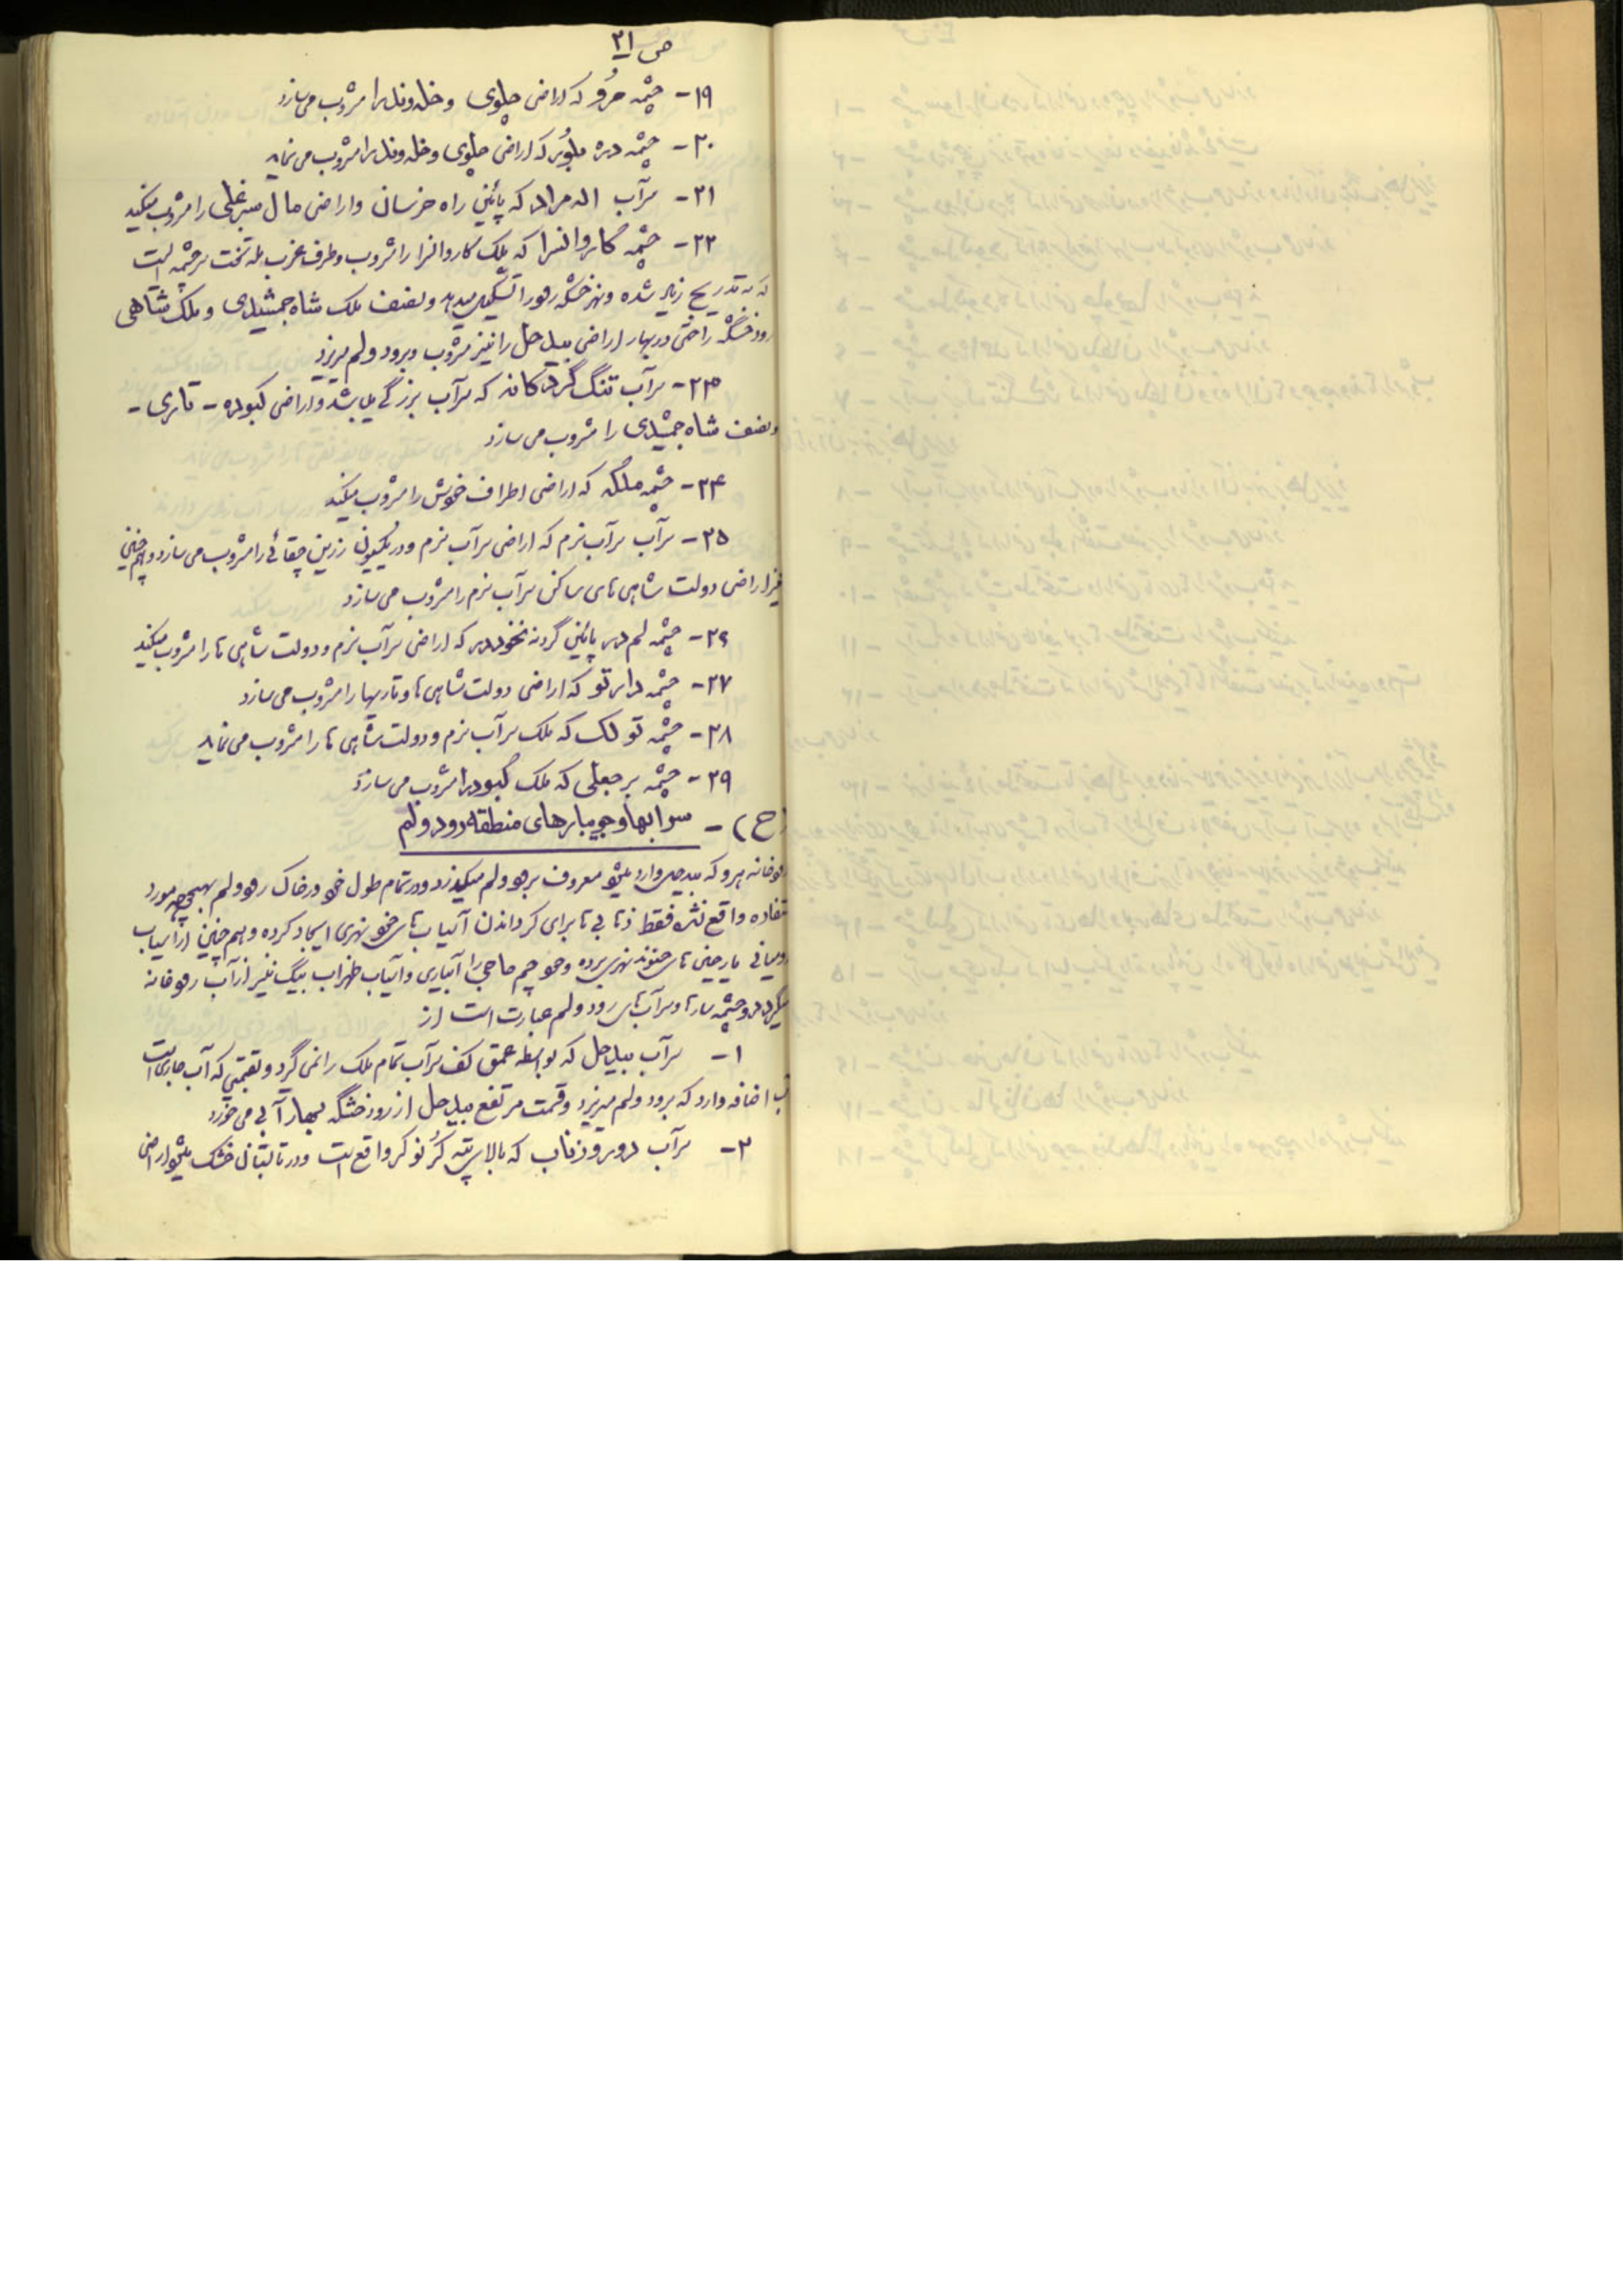 ص ۲۱
۱۹- چشمه مرو که اراضی چلوی و خله وند را مشروب می سازد
۲۰- چشمه دره بلور که اراضی چلوی و خله وند را مشروب می نماید
۲۱- سرآب اله مراد که پائین راه خرسان و اراضی مال سبزعلی را مشروب میکند
۲۲- چشمه کاروانسرا که ملک کاروانسرا را مشروب و طرف غرب تخت سرچشمه است
که به تدریج زیاد شده و نهر خشکه رود را تشکیل میدهد و نصف ملک شاه جمشیدی و ملک شاهی
رود خشگه را حتی در بهار اراضی بید حل را نیز مشروب و برود ولم میریزد
۲۳- سرآب تنگ گردکانه که سرآب بزرگی میباشد و اراضی کبوده - تاری -
و نصف شاه جمشیدی را مشروب می سازد
۲۴- چشمه ملگه که اراضی اطراف خویش را مشروب میکند
۲۵- سرآب سرآب نرم که اراضی سرآب نرم و در یکسوی زرین چقائی را مشروب می سازد و هم چنین
نیز اراضی دولت شاهی های ساکن سرآب نرم را مشروب می سازد
۲۶- چشمه لم در پائین گردنه نخودر که اراضی سرآب نرم و دولت شاهی ها را مشروب میکند
۲۷- چشمه دارتو که اراضی دولت شاهی ها و تاریها را مشروب می سازد
۲۸- چشمه تو لک که ملک سرآب نرم و دولت شاهی ها را مشروب می نماید
۲۹- چشمه برجعلی که ملک کبود را مشروب می سازد
(ح) - سرابها و جویبارهای منطقه رود ولم
رودخانه هرو که وارد معروف برود ولم میگذرد و در تمام طول خود در خاک رود ولم بهیچوجه مورد
استفاده واقع نشده فقط برای گرداندن آسیاب های خود نهری ایجاد کرده و هم چنین از آسیاب
نهر برده و چم حاجی را آبیاری و آسیاب ظهراب بیگ نیز از آب رودخانه
میگردد و چشمه سارها و سرآب های رود ولم عبارت است از
۱- سرآب بید حل که بواسطه عمق کف سرآب تمام ملک را نمی گیرد و که آب جاری است
آب اضافه دارد که برود ولم میریزد و قسمت مرتفع بید حل از رود خشگه بهار آبی می خورد
۲- سرآب که بالای تپه کرنوکر واقع است و در تابستان خشک میشود اراضی